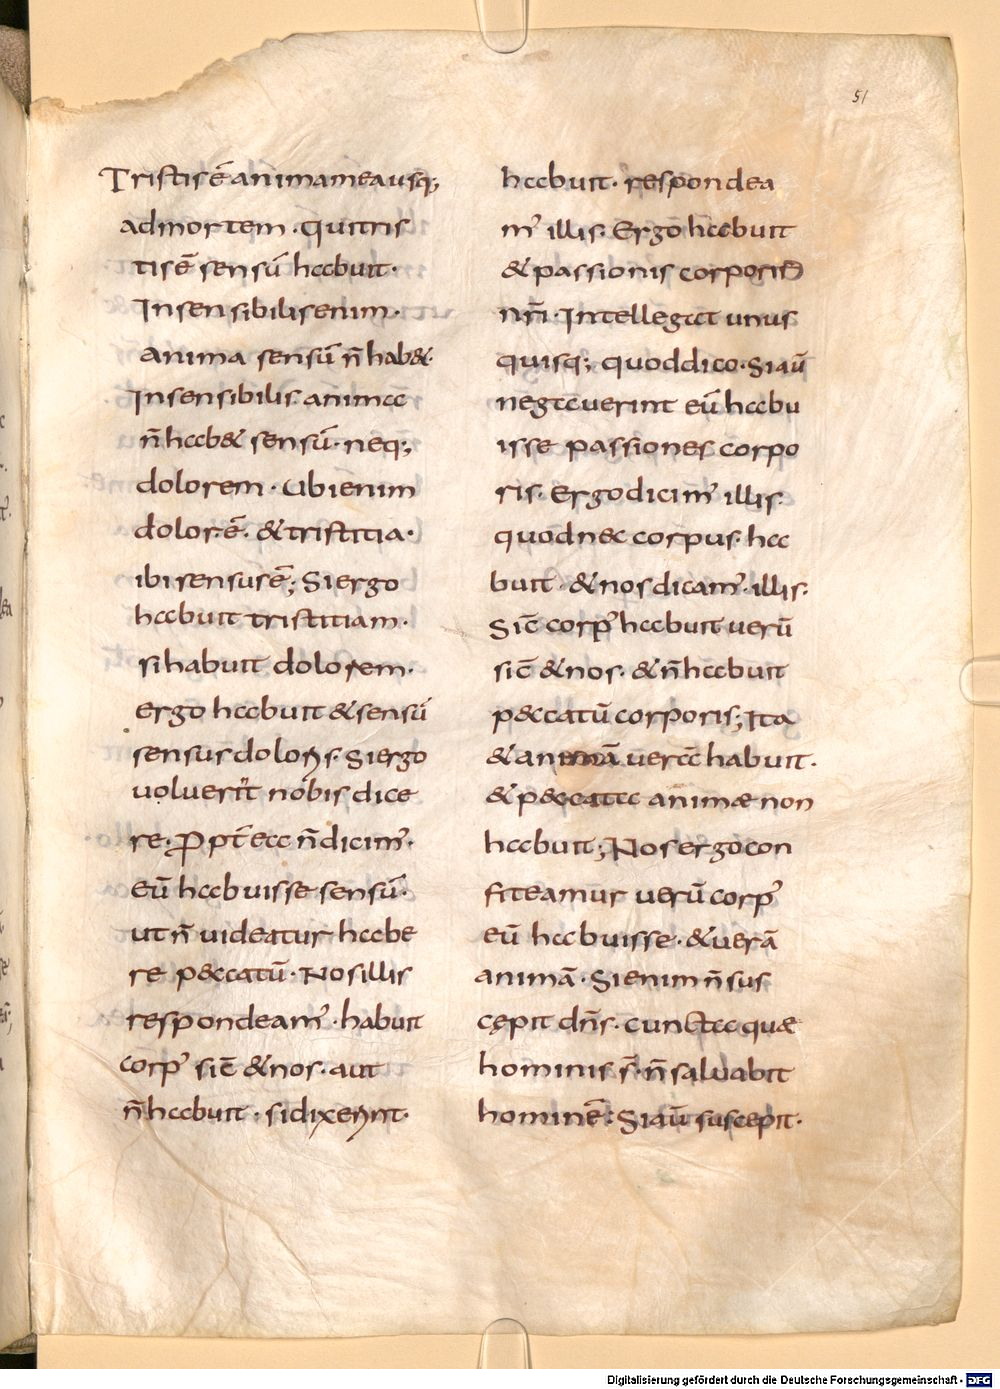 51
Tristis ē anima mea usq;
ad mortem · Qui tris
tis ē sensū habuit ·
Insensibilis enim ·
anima sensū n̄ hab& ·
Insensibilis anima
n̄ hab& sensū · neq;
dolorem · Ubi enim
dolor · ē · & tristitia ·
ibi sensus ē; Si ergo
habuit tristitiam ·
si habuit dolorem ·
ergo habuit & sensū
sensus doloris · Si ergo
voluerit nobis dice
re · Propt̄ ea n̄ dicim' ·
eū habuisse sensū ·
ut n̄ uideatur habe
re p&catū · Nos illis
respondeam' · habuit
corp' sic̄ & nos · aut
n̄ habuit · si dixerunt ·
habuit · respondea
m' illis · Ergo habuit
& passionis corporis
nr̄i · Intellegat unus
quisq; quod dico · Si aū
negauerint eū habu
isse passiones corpo
ris · Ergo dicim' illis ·
quod nec corpus ha
buit · & nos dicam' · illis ·
Sic̄ corp' habuit uerū
sic̄ & nos · & n̄ habuit
p&catū corporis; Ita
& animā uerā habuit ·
& p&cata animæ non
habuit; Nos ergo con
fiteamur uerū corp'
eū habuisse · & uerā
animā · Si enim n̄ sus
cępit dn̄s · cuncta quæ
hominis s̄ · n̄ saluabit
hominē: Si aū suscepit ·
Digitalisierung gefördert durch die Deutsche Forschungsgemeinschaft - DFG